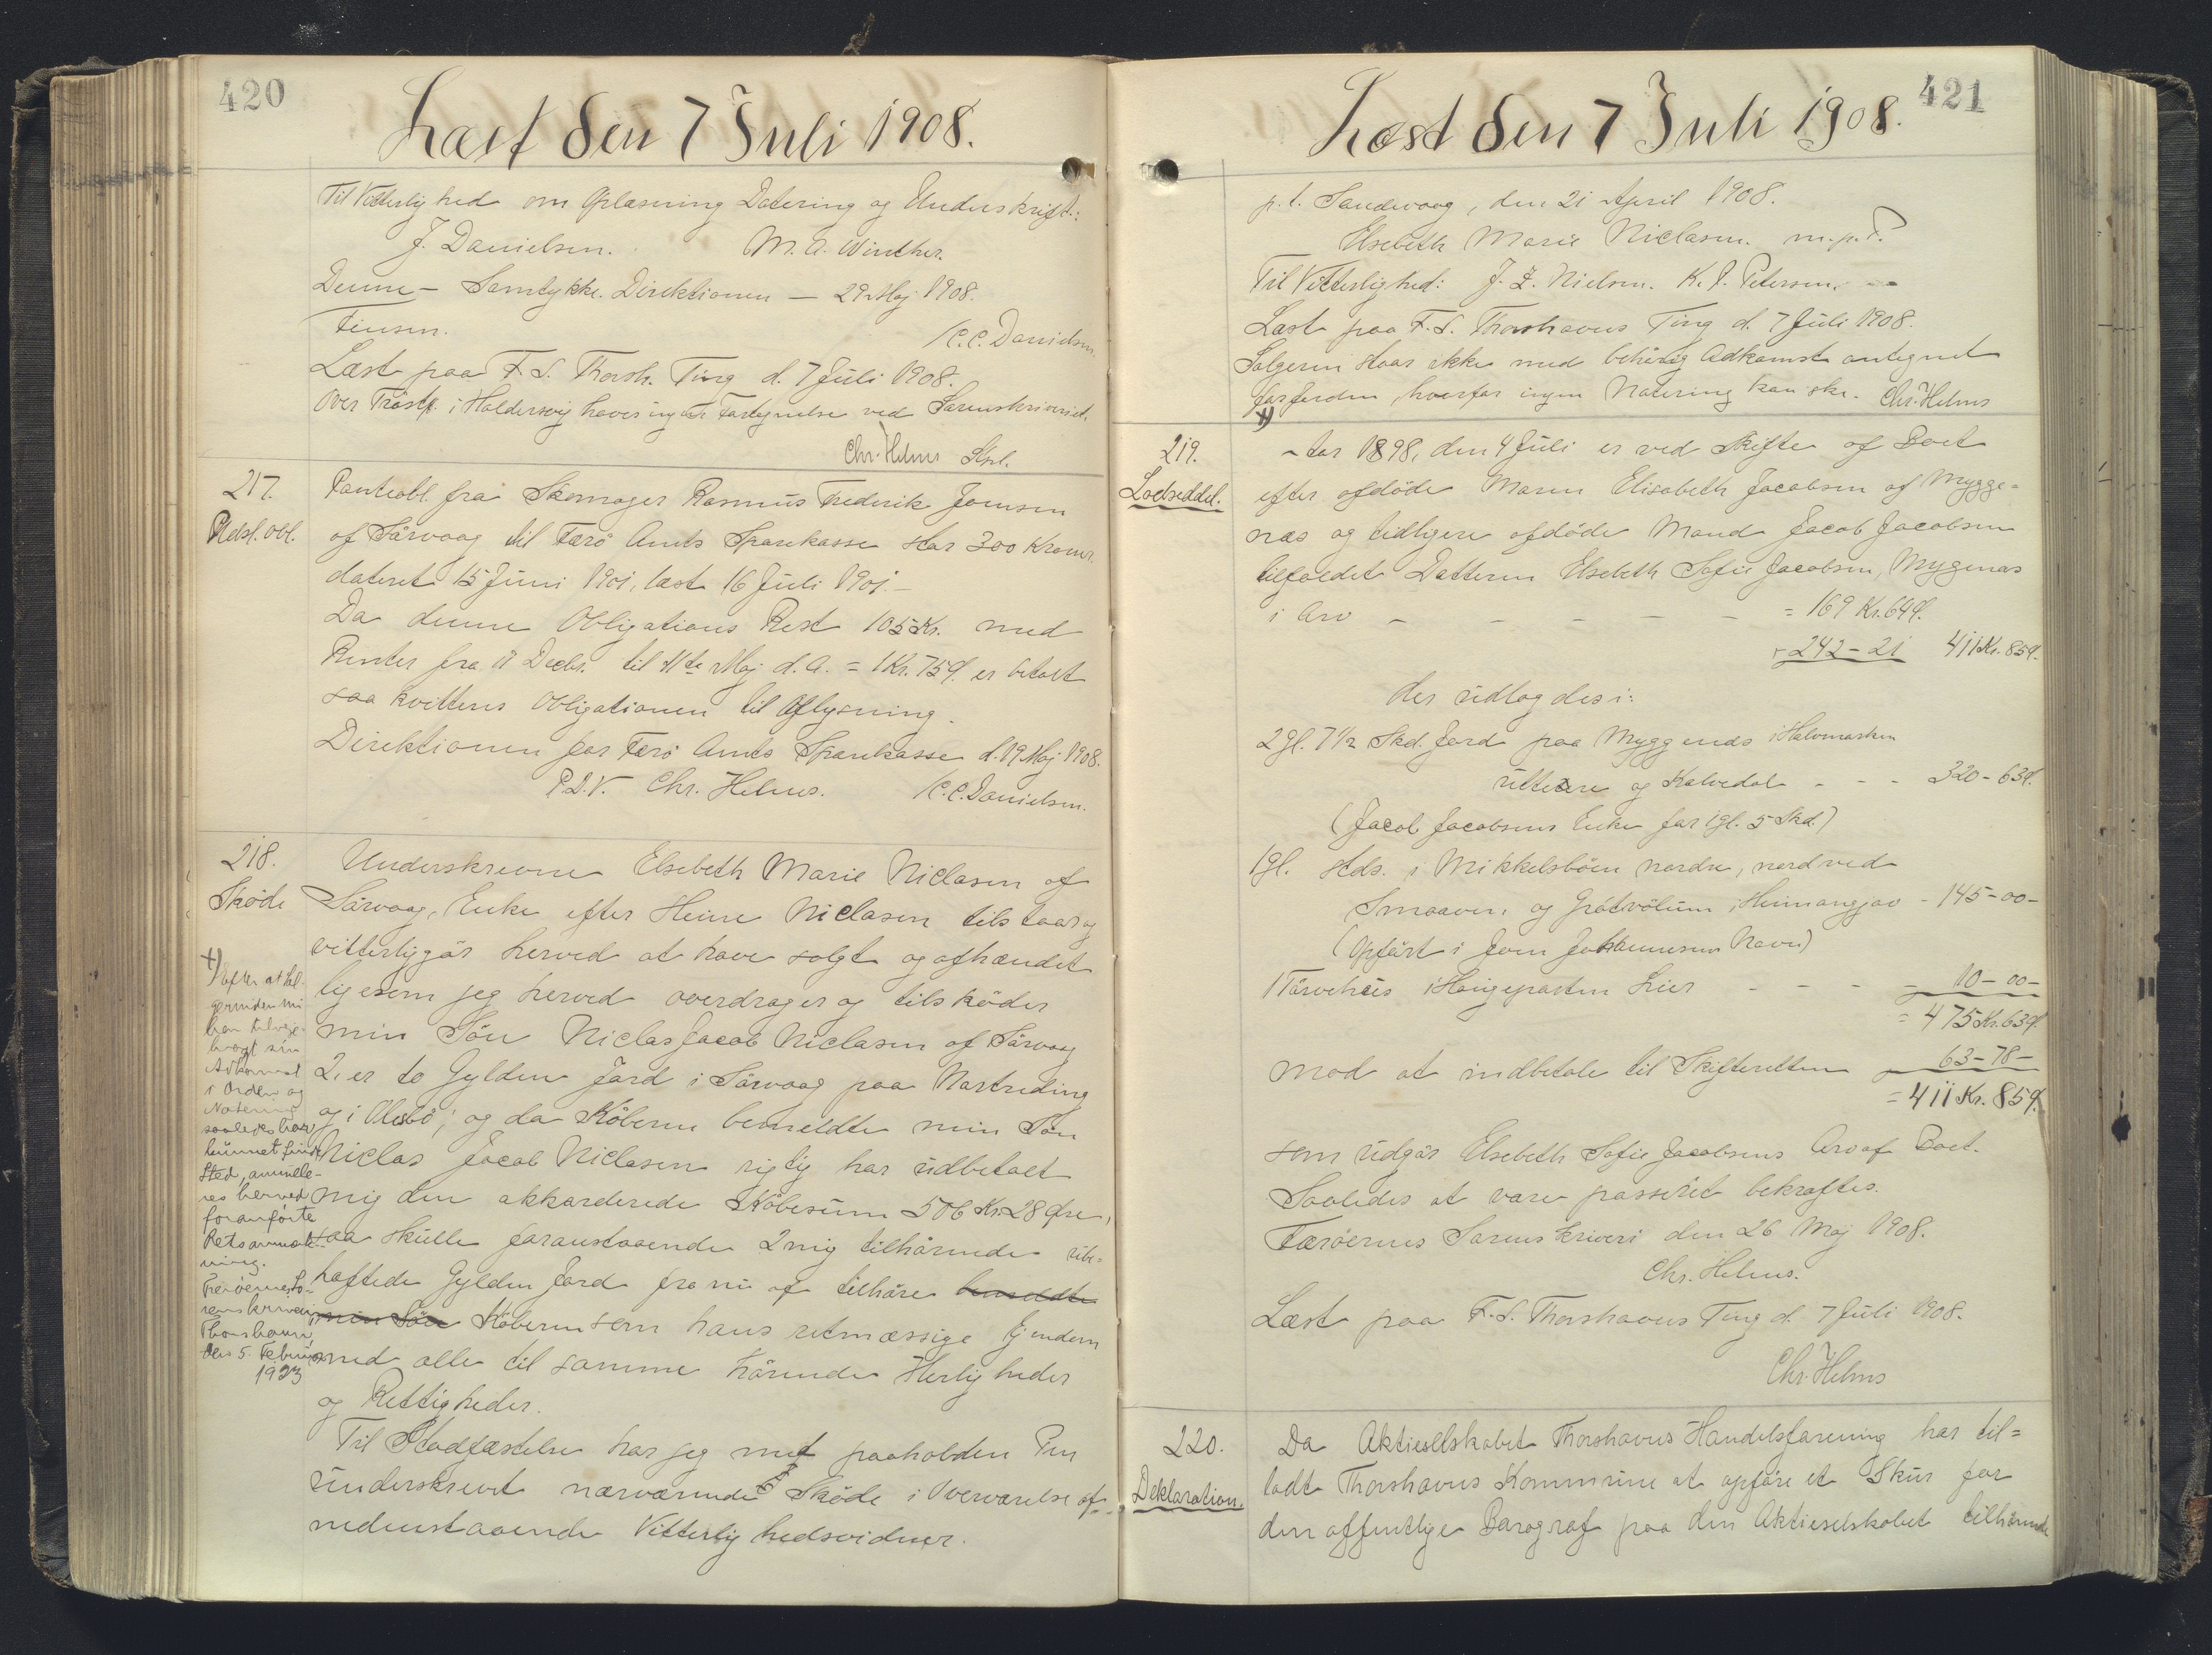 420
Læst den 7 Juli 1908.
Til Vitterlighed om Oplæsning Datering og Underskrift:
J. Danielsen. M. A. Winther.
Denne – Samtykke. Direktionen – 29 Maj 1908.
Finsen. C. C. Danielsen.
Læst paa F. S. Thorsh. Ting d. 7 Juli 1908.
Over i Haldersvig haves ingen Fortegnelse ved Sorenskriveriet.
Chr. Helms Kst.
217.
Udsl. Obl.
Panteobl. fra Skomager Rasmus Frederik Joensen
af Sörvaag til Færö Amts Sparekasse stor 300 Kroner,
dateret 15 Juni 1901, læst 16 Juli 1901.–
Da denne Obligations Rest 105 Kr. med
Renter fra 11 Decbr. til 11te Maj d. A. = 1 Kr. 75 Ø. er betalt
saa kvitteres Obligationen til Aflysning.
Direktionen for Færö Amts Sparekasse d. 19 Maj 1908.
P. D. V. Chr. Helms. C. C. Danielsen.
218.
Sköde
Underskrevne Elsebeth Marie Niclasen af
Sörvaag, Enke efter Heine Niclasen tilstaar og
vitterliggör herved at have solgt og afhændet
ligesom jeg herved overdrager og tilsköder
min Sön Niclas Jacob Niclasen af Sörvaag
2, er to Gylden Jord i Sörvaag paa Nastreding
og i Ulisbö; og da Köberen bemeldte min Sön
Niclas Jacob Niclasen rigtig har udbetalt
mig den akkorderede Köbesum 506 Kr. 28 Øre,
saa skulle foranstaaende 2 mig tilhörende ube-
hæftede Gylden Jord fra nu af tilhöre bemeldte
min Sön Köberen som hans retmæssige Ejendom
med alle til samme hörende Herligheder
og Rettigheder.
Til Stadfæstelse har jeg med paaholden Pen
underskrevet nærværende Sköde i Overværelse af
nedenstaaende Vitterlighedsvidner.
+) efter at Sæl-
gerinden nu
har tilveje-
bragt sin
Adkomst
i Orden og
Notering
saaledes har
kunnet finde
Sted, annulle-
res herved
foranförte
Retsanmærk-
ning.
Færöernes So-
renskriveri,
Thorshavn,
den 5. Februar
1923
421
Læst den 7 Juli 1908.
p. t. Sandevaag, den 21 April 1908.
Elsebeth Marie Niclasen. m. p. P.
Til Vitterlighed: J. Z. Nielsen. K. J. Petersen.
Læst paa F. S. Thorshavns Ting d. 7 Juli 1908.
Sælgeren staar ikke med behörig Adkomst antegnet
for Jorden, hvorfor ingen Notering kan ske. Chr. Helms
+)
219.
Lodseddel.
Aar 1898, den 4 Juli er ved Skifte af Boet
efter afdöde Maren Elisabeth Jacobsen af Mygge-
næs og tidligere afdöde Mand Jacob Jacobsen
tilfaldet Datteren Elsebeth Sofie Jacobsen, Mygenæs
i Arv – – – – – = 169 Kr. 64 Ø.
+ 242 – 21 411 Kr. 85 Ø.
der udlagdes i:
2 Gl. 7 1/2 Skd. Jord paa Myggenæs i Halvmarken
og Kalvedal – – – 320 – 63 Ø.
(Jacob Jacobsens Enke for 1 Gl. 5 Skd.)
1 Gl. steds. i Mikkelsböen nordre, nord ved
Smaaver, og i Heimangjov – 145 – 00 –
(Opfört i Joen Johannesens Navn)
1 Törvehus i Haugeparten Lier – – – – 10 – 00 –
= 475 Kr. 63 Ø.
mod at indbetale til Skifteretten 63 – 78 –
= 411 Kr. 85 Ø.
som udgör Elsebeth Sofie Jacobsens Arv af Boet.
Saaledes at være passeret bekræftes.
Færöernes Sorenskriveri den 26 Maj 1908.
Chr. Helms.
Læst paa F. S. Thorshavns Ting d. 7 Juli 1908.
Chr. Helms
220.
Deklaration.
Da Aktieselskabet Thorshavns Handelsforening har til=
ladt Thorshavns Kommune at opföre et Skur for
den offentlige Barograf paa den Aktieselskabet tilhörende